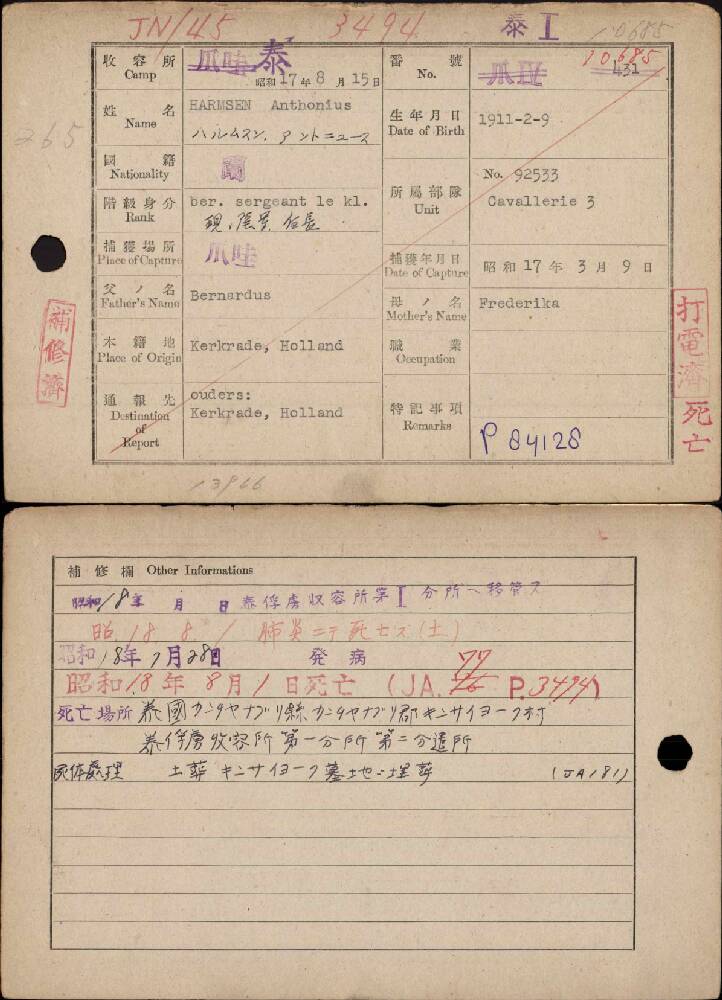 JN/45 3494 泰 I 10685
收容所 Camp 爪哇 泰 昭和17年8月15日
番號 No. 爪IV 10685 431
姓名 Name HARMSEN Anthonius
ハルムスン、アントニュース
生年月日 Date of Birth 1911-2-9
265
國籍 Nationality 蘭
階級身分 Rank ber. sergeant 1e kl.
所屬部隊 Unit No. 92533
Cavallerie 3
捕獲場所 Place of Capture 爪哇
捕獲年月日 Date of Capture 昭和17年3月9日
父ノ名 Father's Name Bernardus
母ノ名 Mother's Name Frederika
本籍地 Place of Origin Kerkrade, Holland
職業 Occupation
通報先 Destination of Report ouders:
Kerkrade, Holland
特記事項 Remarks P 84128
補修濟
打電濟 死亡
13966
補修欄 Other Informations
昭和18年 月 日泰俘虜収容所第I分所ヘ移管ス
昭.18.8.1 肺炎ニテ死亡ス(土)
昭和18年7月28日 発病
昭和18年8月1日死亡 (JA. 77 P.3494)
死亡場所 泰國カンチヤナブリ縣カンチヤナブリ郡キンサイヨーク村
泰俘虜收容所第一分所第二分遣所
死体處理 土葬 キンサイヨーク墓地ニ埋葬 (JA181)